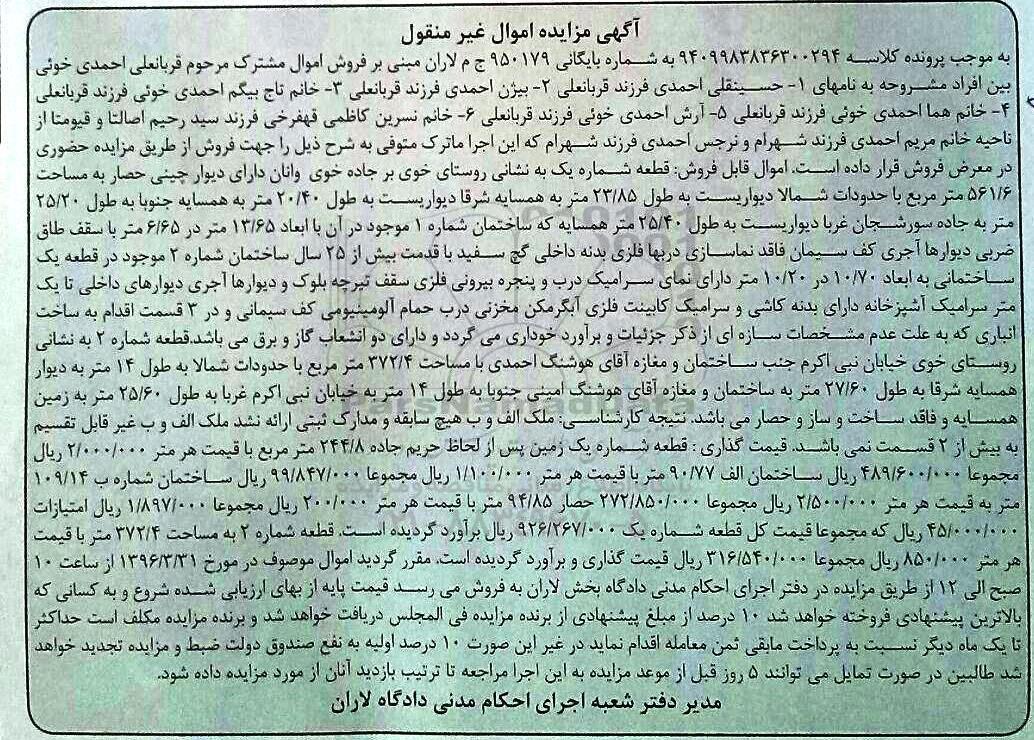 آگهی مزایده اموال غیر منقول
به موجب پرونده کلاسه ۹۴۰۹۹۸۳۸۳۶۳۰۰۲۹۴ به شماره بایگانی ۹۵۰۱۷۹ ج م لاران مبنی بر فروش اموال مشترک مرحوم قربانعلی احمدی خوئی
بین افراد مشروحه به نامهای ۱- حسینقلی احمدی فرزند قربانعلی ۲- بیژن احمدی فرزند قربانعلی ۳- خانم تاج بیگم احمدی خوئی فرزند قربانعلی
۴- خانم هما احمدی خوئی فرزند قربانعلی ۵- آرش احمدی خوئی فرزند قربانعلی ۶- خانم نسرین کاظمی قهفرخی فرزند سید رحیم اصالتا و قیومتا از
ناحیه خانم مریم احمدی فرزند شهرام و نرجس احمدی فرزند شهرام که این اجرا ماترک متوفی به شرح ذیل را جهت فروش از طریق مزایده حضوری
در معرض فروش قرار داده است. اموال قابل فروش: قطعه شماره یک به نشانی روستای خوی بر جاده خوی وانان دارای دیوار چینی حصار به مساحت
۵۶۱/۶ متر مربع با حدودات شمالا دیواریست به طول ۲۳/۸۵ متر به همسایه شرقا دیواریست به طول ۲۰/۴۰ متر به همسایه جنوبا به طول ۲۵/۲۰
متر به جاده سورشجان غربا دیواریست به طول ۲۵/۴۰ متر همسایه که ساختمان شماره ۱ موجود در آن با ابعاد ۱۳/۶۵ متر در ۶/۶۵ متر با سقف طاق
ضربی دیوارها آجری کف سیمان فاقد نماسازی دربها فلزی بدنه داخلی گچ سفید با قدمت بیش از ۲۵ سال ساختمان شماره ۲ موجود در قطعه یک
ساختمانی به ابعاد ۱۰/۷۰ در ۱۰/۲۰ متر دارای نمای سرامیک درب و پنجره بیرونی فلزی سقف تیرچه بلوک و دیوارها آجری دیوارهای داخلی تا یک
متر سرامیک آشپزخانه دارای بدنه کاشی و سرامیک کابینت فلزی آبگرمکن مخزنی درب حمام آلومینیومی کف سیمانی و در ۳ قسمت اقدام به ساخت
انباری که به علت عدم مشخصات سازه ای از ذکر جزئیات و برآورد خوداری می گردد و دارای دو انشعاب گاز و برق می باشد.قطعه شماره ۲ به نشانی
روستای خوی خیابان نبی اکرم جنب ساختمان و مغازه آقای هوشنگ احمدی با مساحت ۳۷۲/۴ متر مربع با حدودات شمالا به طول ۱۴ متر به دیوار
همسایه شرقا به طول ۲۷/۶۰ متر به ساختمان و مغازه آقای هوشنگ امینی جنوبا به طول ۱۴ متر به خیابان نبی اکرم غربا به طول ۲۵/۶۰ متر به زمین
همسایه و فاقد ساخت و ساز و حصار می باشد. نتیجه کارشناسی: ملک الف و ب هیچ سابقه و مدارک ثبتی ارائه نشد ملک الف و ب غیر قابل تقسیم
به بیش از ۲ قسمت نمی باشد. قیمت گذاری : قطعه شماره یک زمین پس از لحاظ حریم جاده ۲۴۴/۸ متر مربع با قیمت هر متر ۲/۰۰۰/۰۰۰ ریال
مجموعا ۴۸۹/۶۰۰/۰۰۰ ریال ساختمان الف ۹۰/۷۷ متر با قیمت هر متر ۱/۱۰۰/۰۰۰ ریال مجموعا ۹۹/۸۴۷/۰۰۰ ریال ساختمان شماره ب ۱۰۹/۱۴
متر به قیمت هر متر ۲/۵۰۰/۰۰۰ ریال مجموعا ۲۷۲/۸۵۰/۰۰۰ حصار ۹۴/۸۵ متر با قیمت هر متر ۲۰۰/۰۰۰ ریال مجموعا ۱/۸۹۷/۰۰۰ ریال امتیازات
۴۵/۰۰۰/۰۰۰ ریال که مجموعا قیمت کل قطعه شماره یک ۹۲۶/۲۶۷/۰۰۰ ریال برآورد گردیده است. قطعه شماره ۲ به مساحت ۳۷۲/۴ متر با قیمت
هر متر ۸۵۰/۰۰۰ ریال مجموعا ۳۱۶/۵۴۰/۰۰۰ ریال قیمت گذاری و برآورد گردیده است. مقرر گردید اموال موصوف در مورخ ۱۳۹۶/۳/۳۱ از ساعت ۱۰
صبح الی ۱۲ از طریق مزایده در دفتر اجرای احکام مدنی دادگاه بخش لاران به فروش می رسد قیمت پایه از بهای ارزیابی شده شروع و به کسانی که
بالاترین پیشنهادی فروخته خواهد شد ۱۰ درصد از مبلغ پیشنهادی از برنده مزایده فی المجلس دریافت خواهد شد و برنده مزایده مکلف است حداکثر
تا یک ماه دیگر نسبت به پرداخت مابقی ثمن معامله اقدام نماید در غیر این صورت ۱۰ درصد اولیه به نفع صندوق دولت ضبط و مزایده تجدید خواهد
شد طالبین در صورت تمایل می توانند ۵ روز قبل از موعد مزایده به این اجرا مراجعه تا ترتیب بازدید آنان از مورد مزایده داده شود.
مدیر دفتر شعبه اجرای احکام مدنی دادگاه لاران